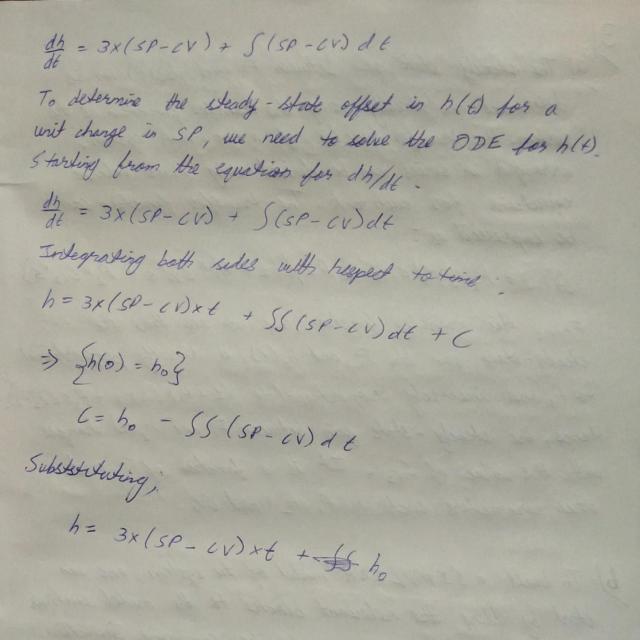 dh/dt = 3×(SP-CV) + ∫(SP-CV) dt
To determine the steady-state offset in h(t) for a
unit change in SP, we need to solve the ODE for h(t).
Starting from the equation for dh/dt.
dh/dt = 3×(SP-CV) + ∫(SP-CV)dt
Integrating both sides with respect to time:
h = 3×(SP-CV)×t + ∫∫(SP-CV)dt + C
⇒ {h(0) = h₀}
C = h₀ - ∫∫(SP-CV)dt
Subststituting,
h = 3×(SP-CV)×t + h₀